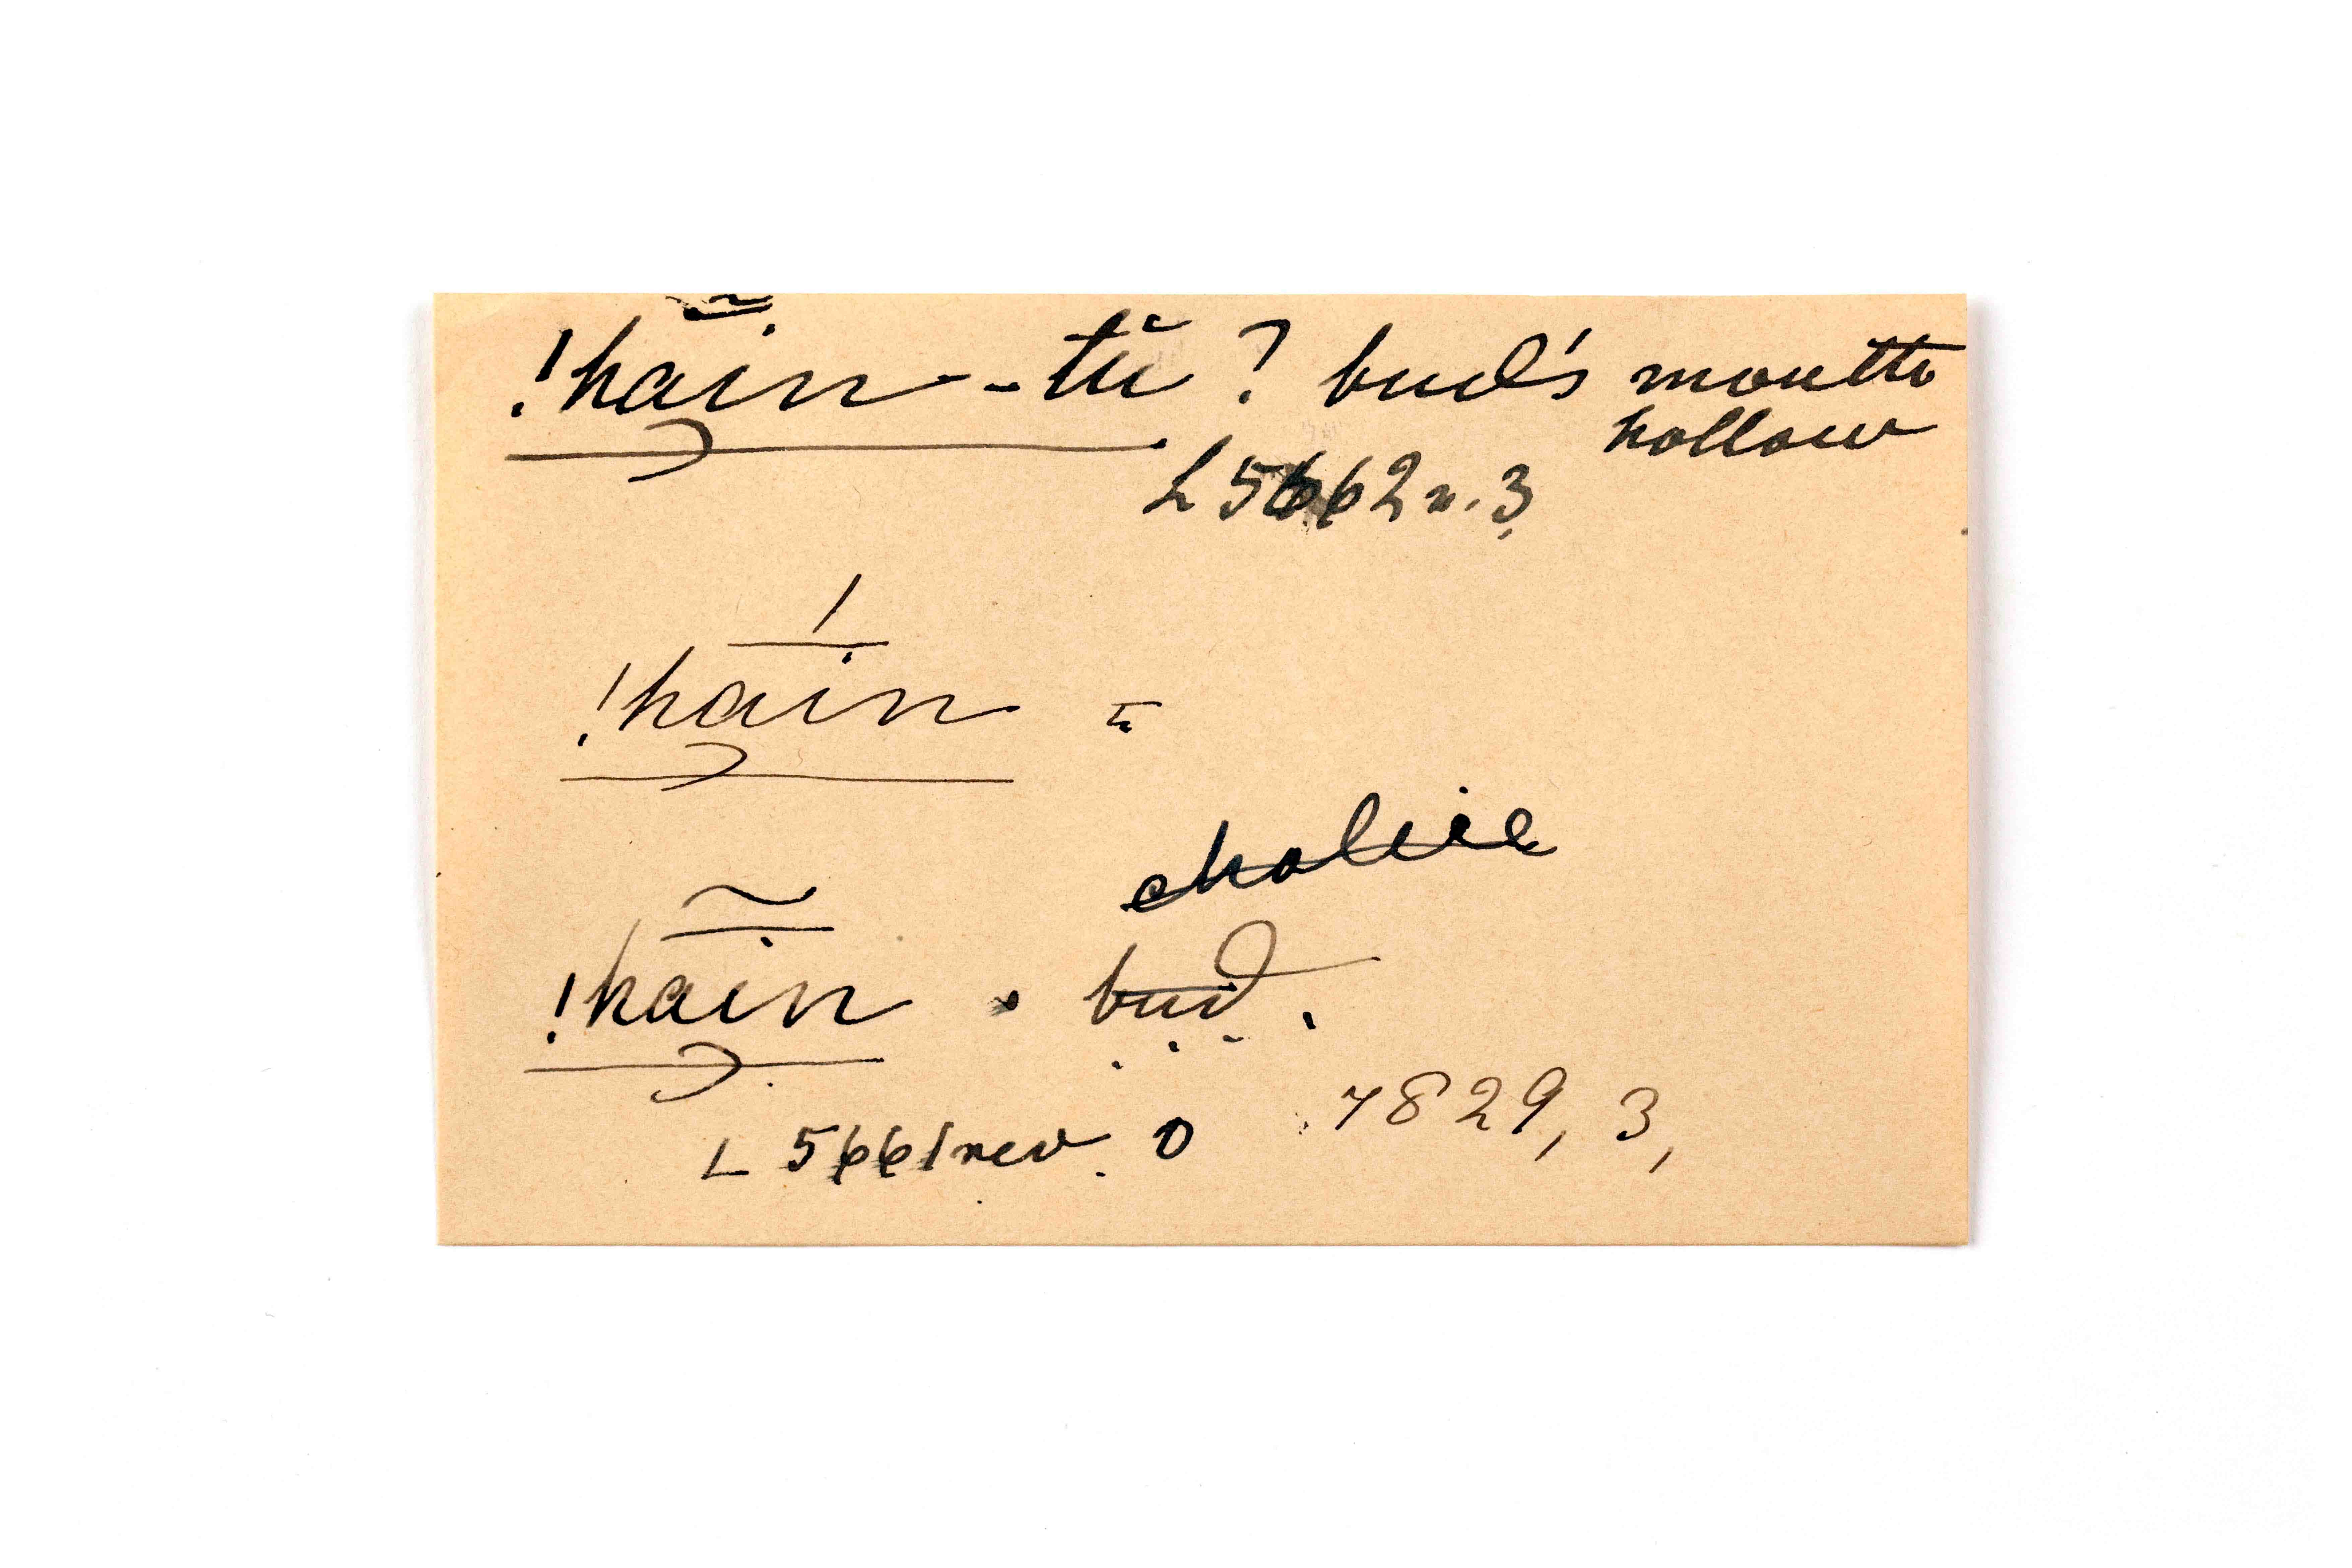 !hain - tŭ ? bud's mouth
hollow
L 5662 n. 3
!hain =
chalice
!hain . bud .
L 5661 rev. 0 7829, 3,